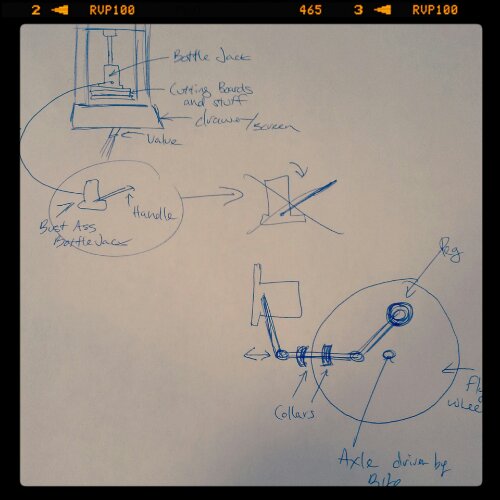 2 RVP100 465 3 RVP100
Bottle Jack
Cutting Boards
and stuff
drawer/screen
Valve
Handle
Bust Ass
Bottle Jack
Peg
Fly
wheel
Collars
Axle driven by
Bike